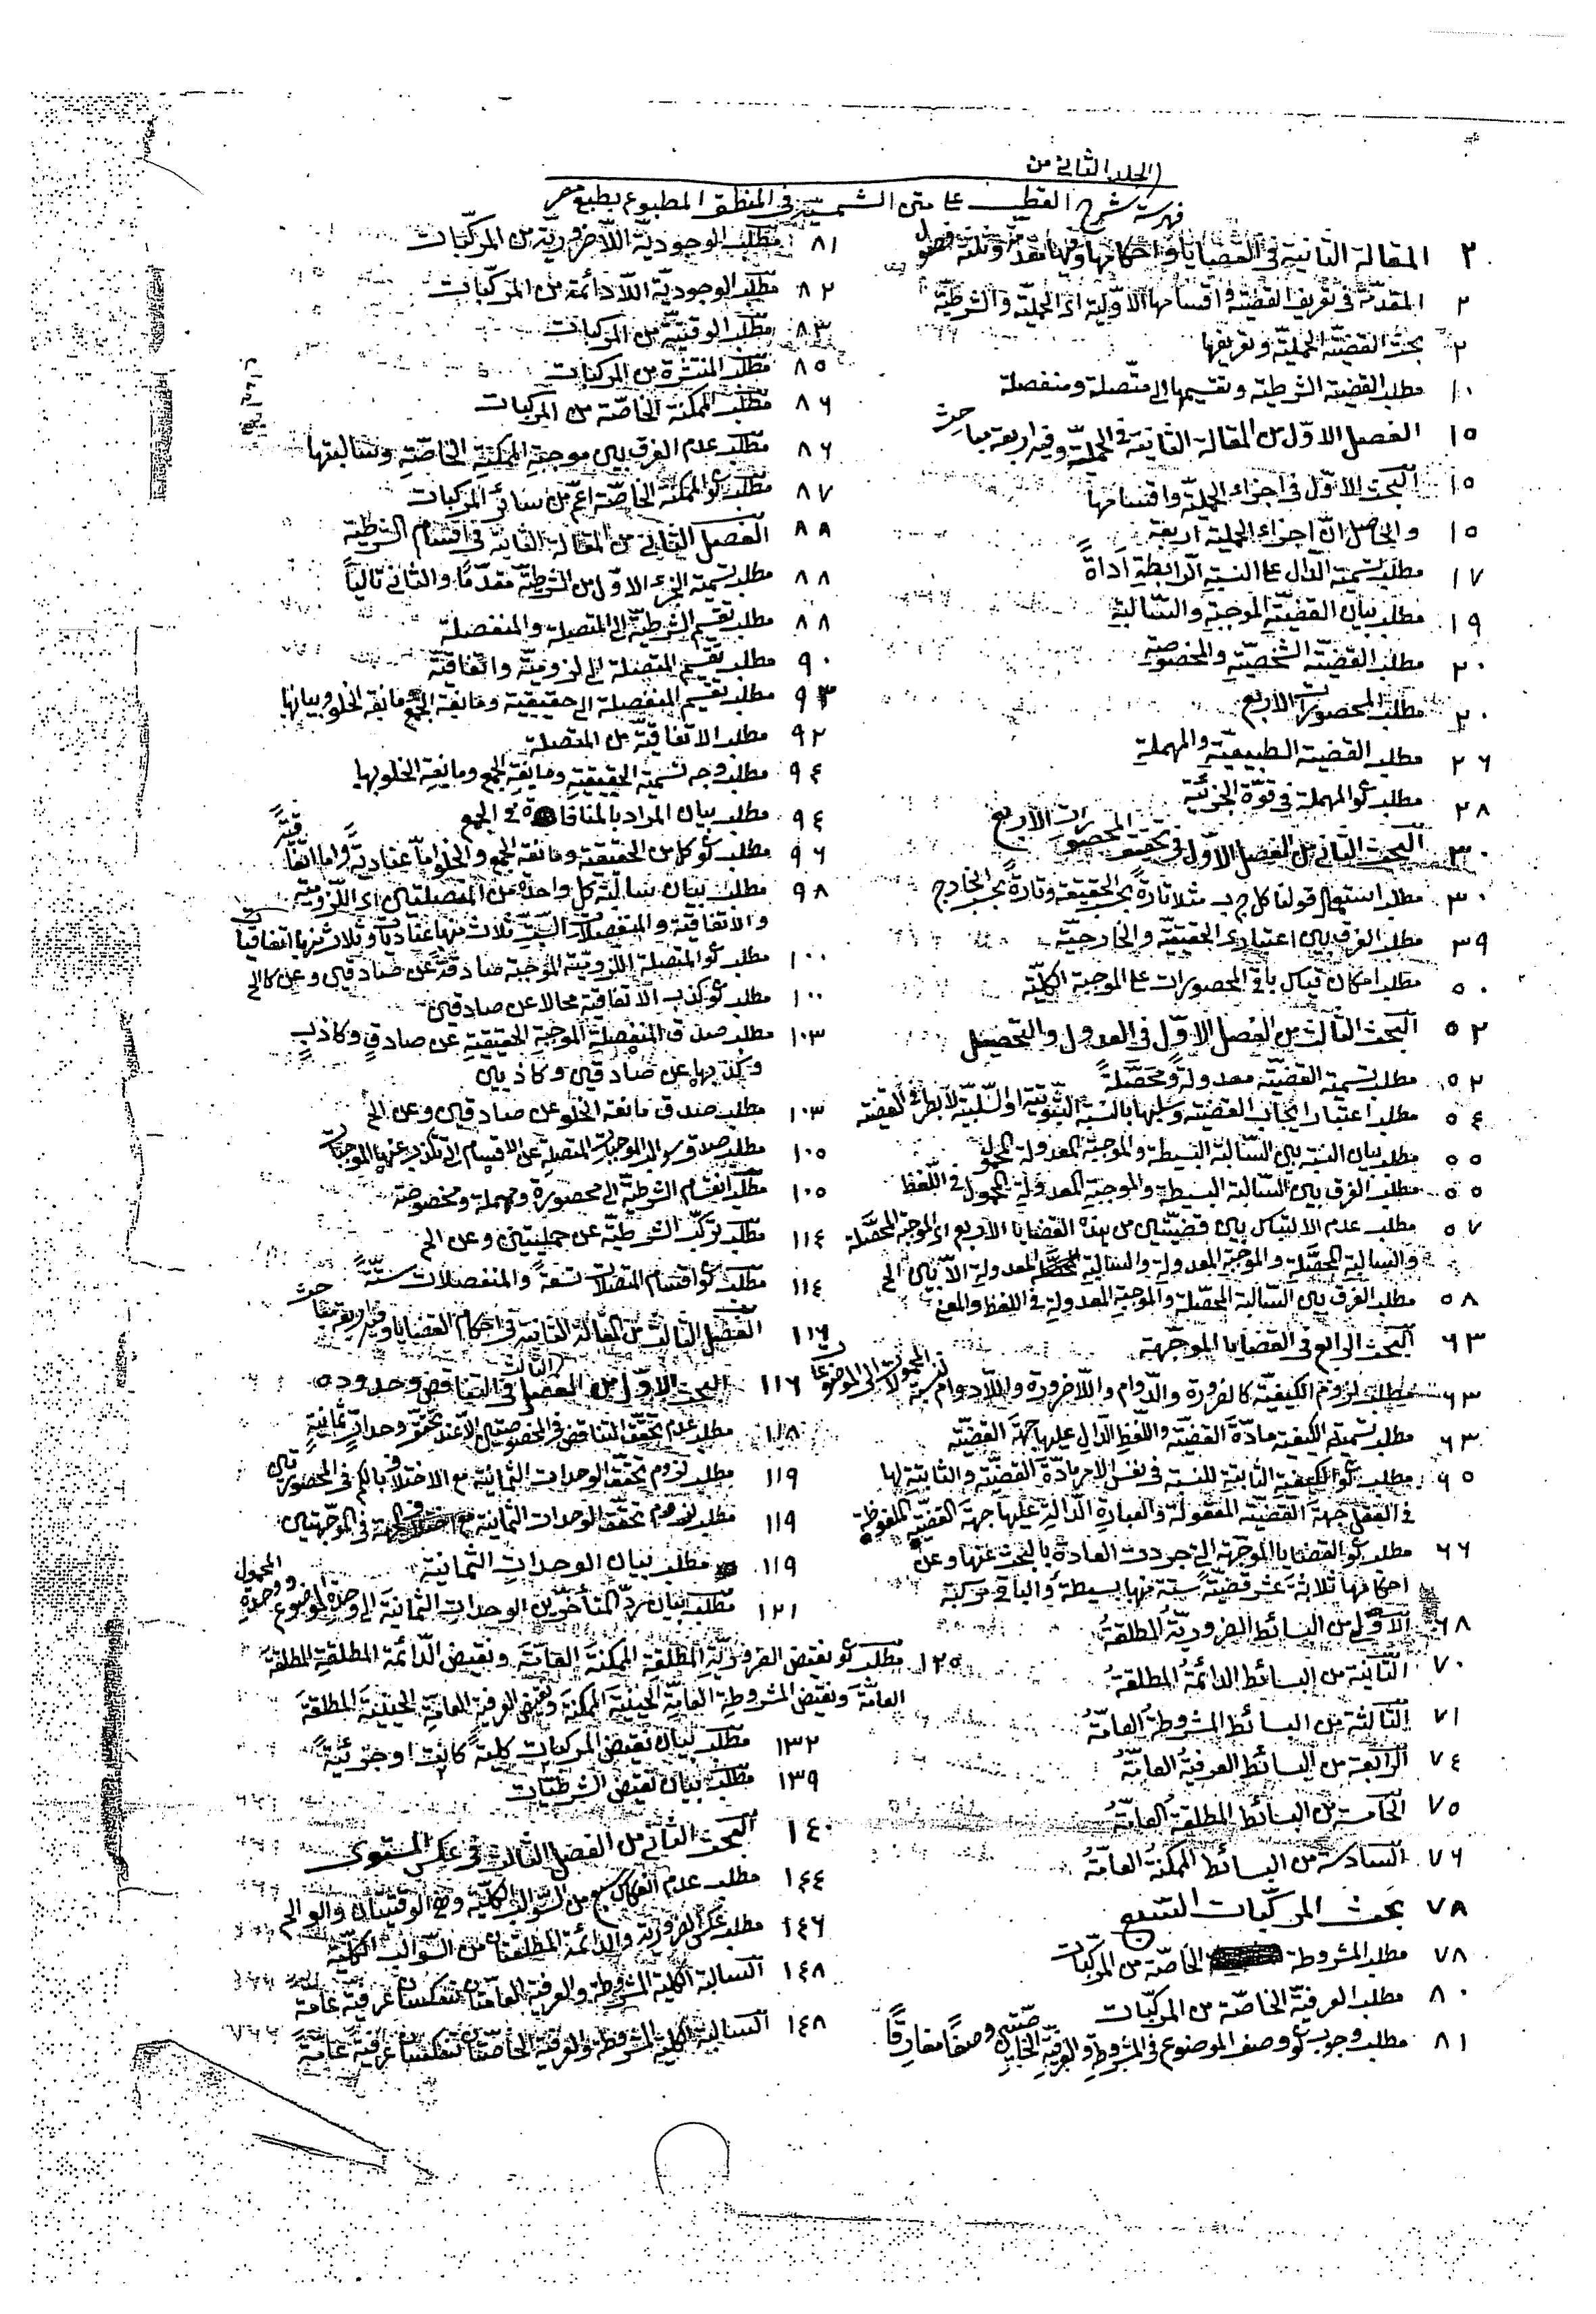 الجلد الثانى من
فهرسة شرح القطب على متن الشمسية فى المنطق المطبوع بطبع مصر
٢ المقالة الثانية فى القضايا واحكامها وفيها مقدمة وثلثة فصول
٢ المقدمة فى تعريف القضية واقسامها الاولية اى الحملية والشرطية
٢ بحث القضية الحملية وتعريفها
١٠ مطلب القضية الشرطية وتقسيمها الى متصلة ومنفصلة
١٥ الفصل الاوّل من المقالة الثانية فى الحملية وفيه اربعة مباحث
١٥ البحث الاوّل فى اجزاء الحملية واقسامها
١٥ والحاصل انّ اجزاء الحملية اربعة
١٧ مطلب تسمية الدال على النسبة الرابطة اداةً
١٩ مطلب بيان القضية الموجبة والسّالبة
٢٠ مطلب القضية الشخصيّة والمخصوصة
٢٠ مطلب المحصورات الاربع
٢٦ مطلب القضية الطبيعيّة والمهملة
٢٨ مطلب كو المهملة فى قوّة الجزئية
٣٠ البحث الثانى من الفصل الاوّل فى تحقيق المحصورات الاربع
٣٠ مطلب استعمال قولنا كل ج ب مثلا تارةً بحسب الحقيقة وتارةً بحسب الخارج
٣٩ مطلب الفرق بين اعتبارى الحقيقيّة والخارجيّة
٥٠ مطلب امكان قياس باقى المحصورات على الموجبة الكليّة
٥٢ البحث الثالث من الفصل الاوّل فى العدول والتحصيل
٥٢ مطلب تسمية القضيّة معدولةً ومحصّلةً
٥٤ مطلب اعتبار ايجاب القضية وسلبها بالنسبة الثبوتية او السّلبيّة لا بطرفى القضية
٥٥ مطلب بيان النسبة بين السّالبة البسيطة والموجبة المعدولة المحمول
٥٥ مطلب الفرق بين السّالبة البسيطة والموجبة المعدولة المحمول فى اللّفظ
٥٧ مطلب عدم الالتباس بين قضيّتين من هذه القضايا الاربع اى الموجبة المحصّلة
والسالبة المحصّلة والموجبة المعدولة والسالبة المعدولة الاّ بين الخ
٥٨ مطلب الفرق بين السّالبة المحصّلة والموجبة المعدولة فى اللفظ والمعنى
٦٣ البحث الرابع فى القضايا الموجّهة
٦٣ مطلب لزوم الكيفيّة كالضرورة والدّوام واللّاضرورة واللّادوام لنسبة المحمولات الى الموضوعات
٦٣ مطلب تسمية الكيفية مادّة القضيّة واللّفظ الدّال عليها جهة القضيّة
٦٥ مطلب كو الكيفية الثابتة للنسبة فى نفس الامر مادّة القضيّة والثابتة لها
فى العقل جهة القضيّة المعقولة والعبارة الدّالة عليها جهة القضيّة الملفوظة
٦٦ مطلب كو القضايا الموجّهة الى جرت العادة بالبحث عنها وعن
احكامها ثلاثة عشر قضيّةً ستة منها بسيطة والباقى مركبة
٦٨ الاوّلى من البسائط الضروريّة المطلقة
٧٠ الثّانية من البسائط الدائمة المطلقة
٧١ الثّالثة من البسائط المشروطة العامّة
٧٤ الرّابعة من البسائط العرفيّة العامّة
٧٥ الخامسة من البسائط المطلقة العامّة
٧٦ السّادسة من البسائط الممكنة العامّة
٧٨ بحث المركبات السّبع
٧٨ مطلب المشروطة الخاصّة من المركّبات
٨٠ مطلب العرفيّة الخاصّة من المركبّات
٨١ مطلب وجوب كو وصف الموضوع فى المشروطة والعرفيّة الخاصّتين وصفًا مفارقًا
٨١ مطلب الوجوديّة اللّاضروريّة من المركّبات
٨٢ مطلب الوجوديّة اللّادائمة من المركّبات
٨٣ مطلب الوقتيّة من المركبات
٨٥ مطلب المنتشرة من المركبات
٨٦ مطلب الممكنة الخاصّة من المركبات
٨٦ مطلب عدم الفرق بين موجبة الممكنة الخاصّة وسالبتها
٨٧ مطلب كو الممكنة الخاصّة اعمّ من سائر المركبات
٨٨ الفصل الثّانى من المقالة الثانية فى اقسام الشرطية
٨٨ مطلب تسمية الجزء الاوّل من الشرطيّة مقدّمًا والثّانى تاليًا
٨٨ مطلب تقسيم الشرطيّة الى المتصلة والمنفصلة
٩٠ مطلب تقسيم المتصلة الى لزوميّة واتّفاقيّة
٩٣ مطلب تقسيم المنفصلة الى حقيقية ومانعة الجمع ومانعة الخلو وبيانها
٩٢ مطلب الاتّفاقيّة من المتصلة
٩٤ مطلب وجه تسمية الحقيقية ومانعة الجمع ومانعة الخلو بها
٩٤ مطلب بيان المراد بالمنافاة فى الجمع
٩٦ مطلب كو كل من الحقيقية ومانعة الجمع والخلو امّا عنادية واما اتّفاقيّة
٩٨ مطلب بيان سالبة كل واحدة من المتصلتين اى اللّزومية
والاتفاقية والمنفصلات السّتّ ثلاث منها عناديات وثلاث منها اتفاقيات
١٠٠ مطلب كو المتصلة اللّزوميّة الموجبة صادقةً عن صادقين وعن كاذ الخ
١٠٠ مطلب كو كذب الاتفاقية محالا عن صادقين
١٠٣ مطلب صدق المنفصلة الموجبة الحقيقية عن صادقٍ وكاذبٍ
وكذبها عن صادقين وكاذبين
١٠٣ مطلب صدق مانعة الخلو عن صادقين وعن الخ
١٠٥ مطلب صدق سوالب الموجبات المتصلة عن الاقسام الى تكذب عنها الموجبات
١٠٥ مطلب انقسام الشرطيّة الى محصورة ومهملة ومخصوصة
١١٤ مطلب تركّب الشرطيّة عن حمليتين وعن الخ
١١٤ مطلب كو اقسام المتصلات تسعةً والمنفصلات ستّةً
١١٦ الفصل الثالث من المقالة الثانية فى احكام القضايا وفيه اربعة مباحث
١١٦ البحث الاوّل من الفصل الثالث فى التناقض وحدوده
١١٨ مطلب عدم تحقّق التناقض فى المخصوصتين الّا عند تحقّق وحدات ثمانية
١١٩ مطلب لزوم تحقّق الوحدات الثمانية مع الاختلاف بالكم فى المحصورتين
١١٩ مطلب لزوم تحقّق الوحدات الثمانية مع الجهة فى الموجّهتين
١١٩ مطلب بيان الوحدات الثمانية
١٢١ مطلب بيان ردّ المتأخرين الوحدات الثمانية الى وحدة الموضوع ووحدة المحمول
١٢٥ مطلب كو نقيض الضروريّة المطلقة الممكنة العامّة ونقيض الدّائمة المطلقة المطلقة
العامّة ونقيض المشروطة العامّة الحينيّة الممكنة ونقيض العرفية العامّة الحينيّة المطلقة
١٣٢ مطلب بيان نقيض المركبات كليةً كانت او جزئيّةً
١٣٩ مطلب بيان نقيض الشرطيّات
١٤٠ البحث الثّانى من الفصل الثالث فى عكس المستوى
١٤٤ مطلب عدم انعكاس سبع من السّوالب الكليّة وهى الوقتيّتان والو الخ
١٤٦ مطلب عكس الضروريّة والدائمة المطلقتان من السّوالب الكليّة
١٤٨ السالبة الكلية المشروطة والعرفية العامّتان تنعكسان عرفيّة عامّة
١٤٨ السّالبة الكليّة المشروطة والعرفية الخاصّتان تنعكسان عرفيّةً عامّةً